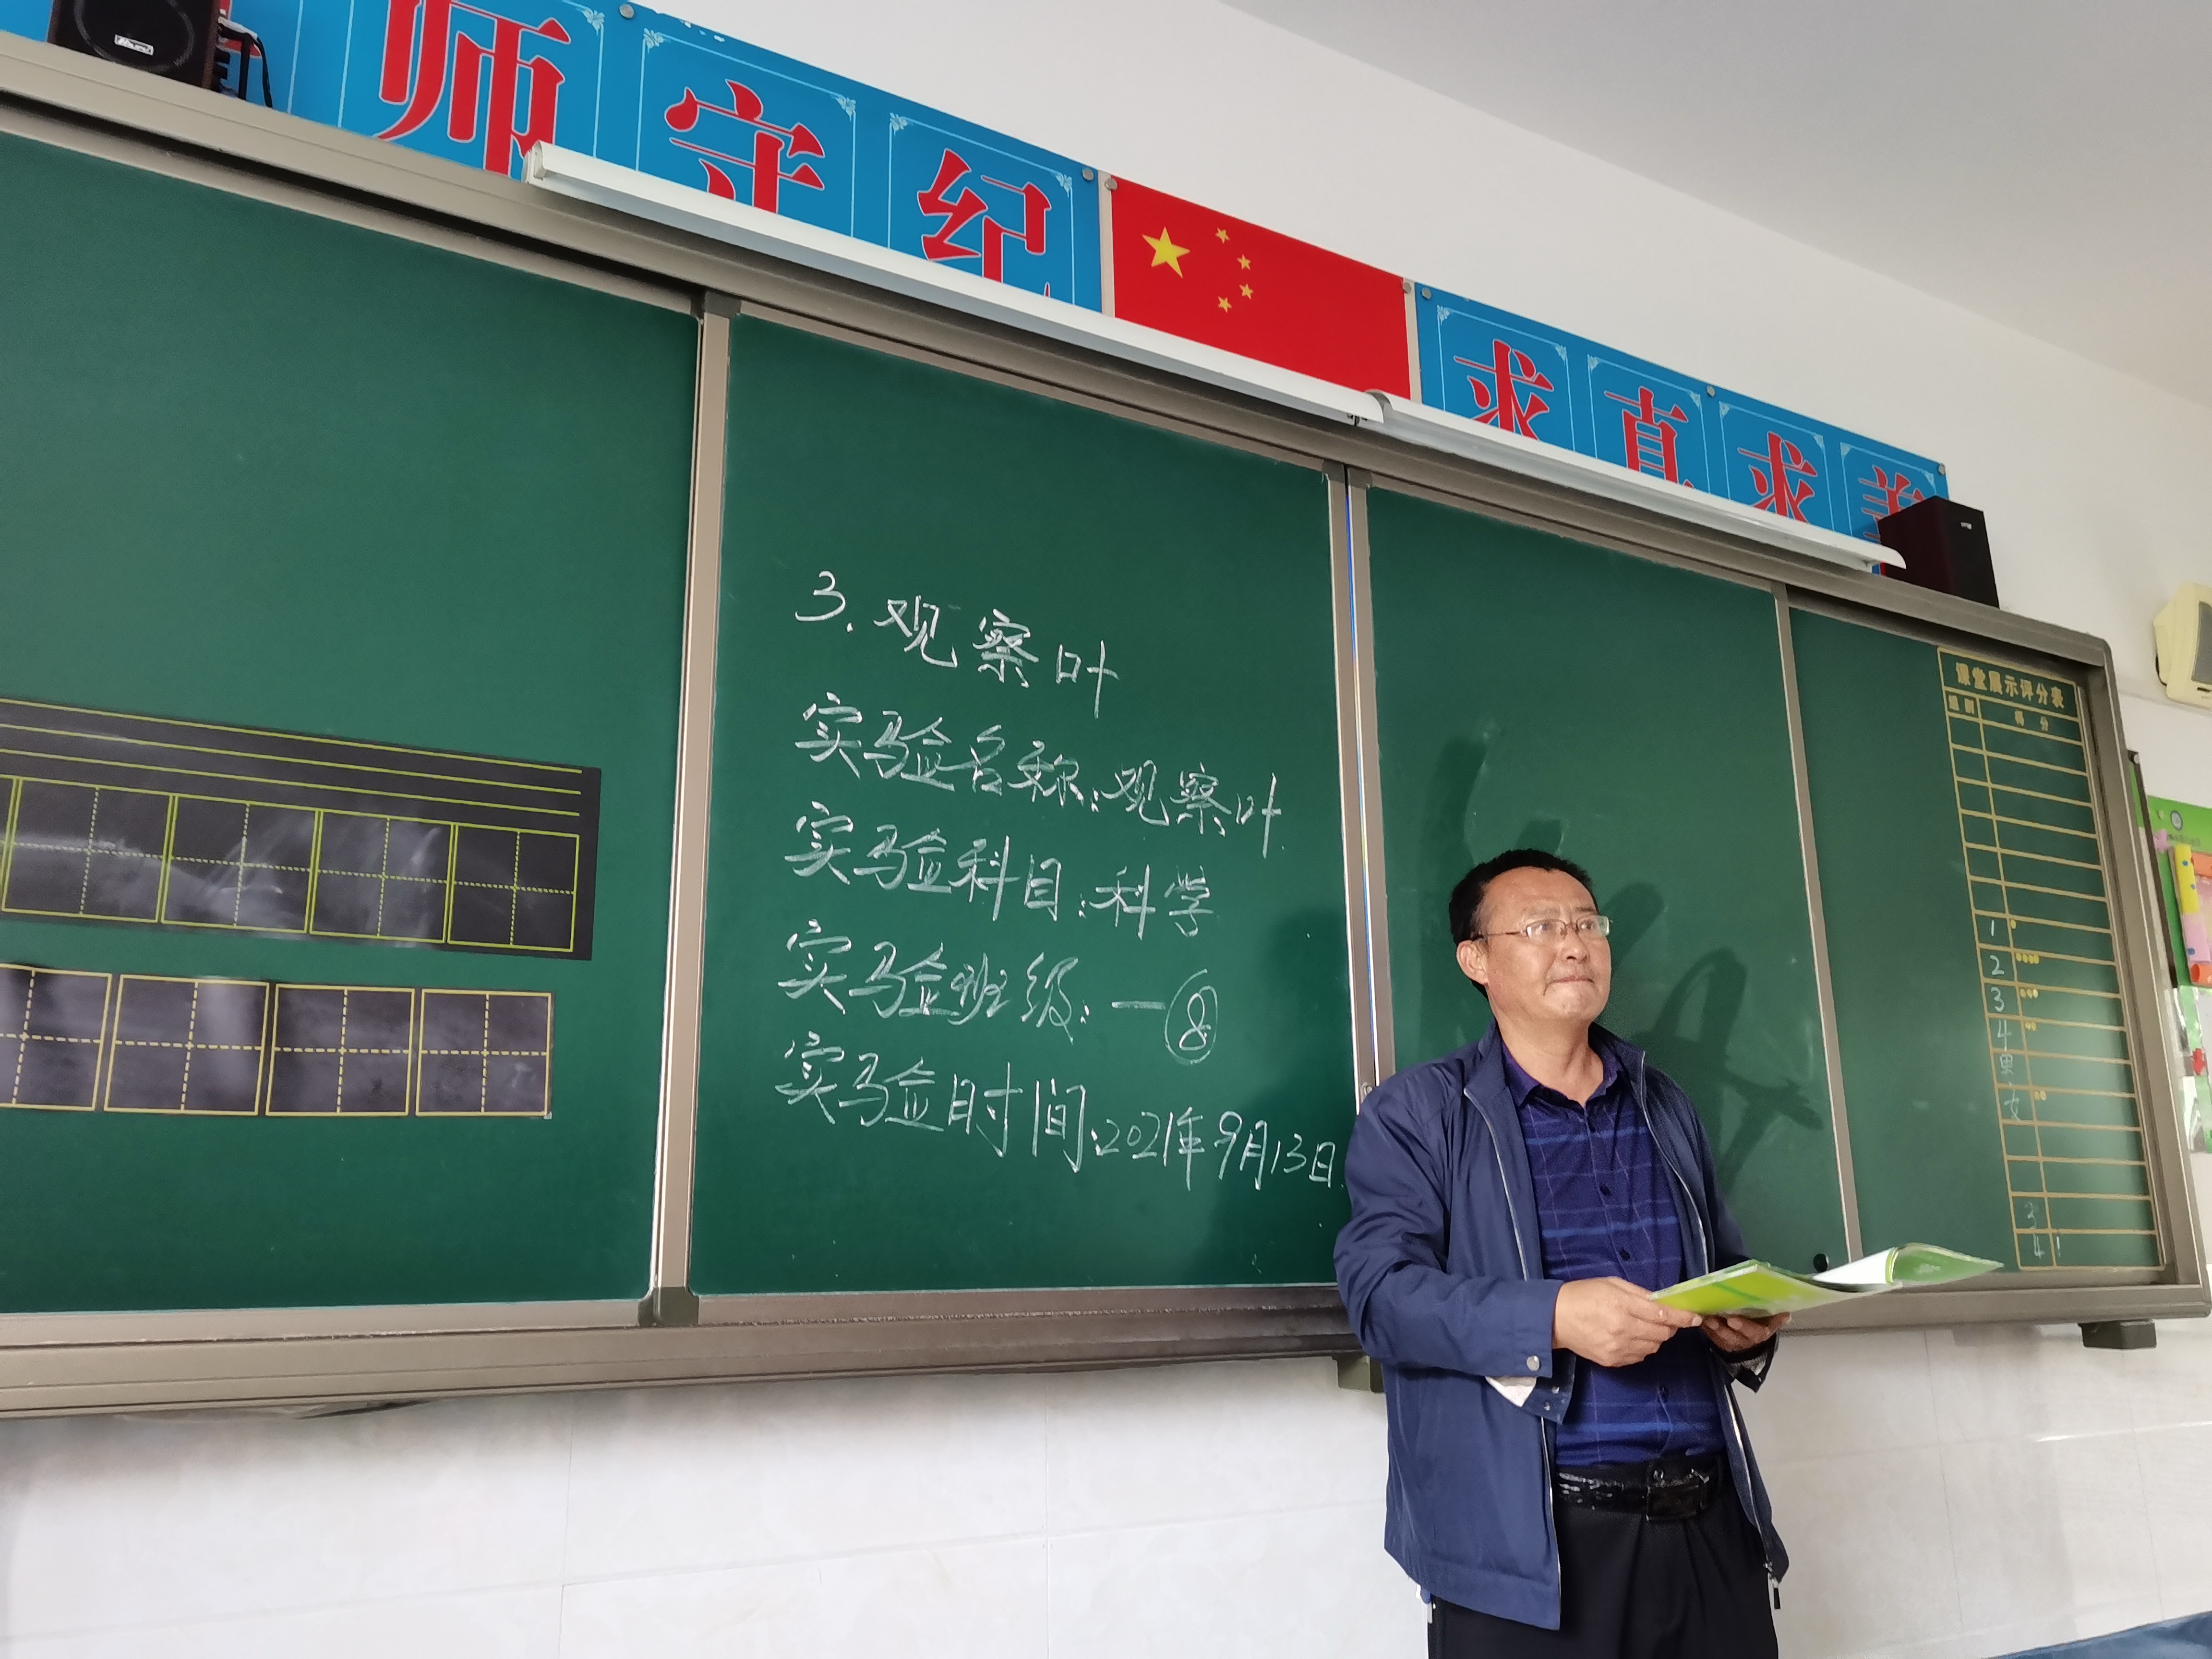 师守纪
求真求善
3.观察叶
实验名称:观察叶
实验科目:科学
实验班级:一⑧
实验时间:2021年9月13日
课堂展示评分表
组别 得分
1
2
3
4
男
女
3
4